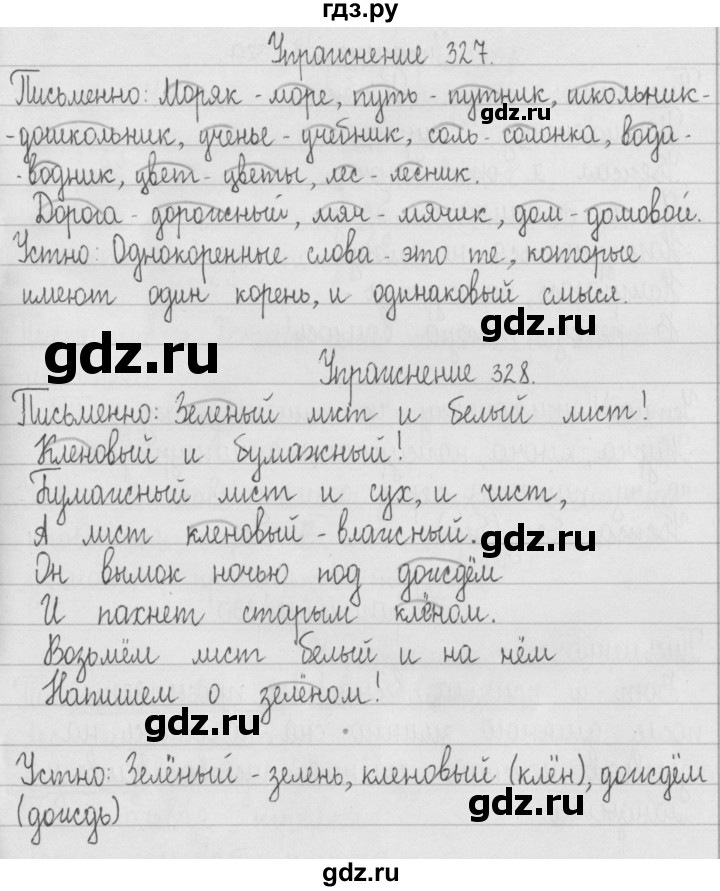 гдз.ру
Упражнение 327.
Письменно: Моряк - море, путь - путник, школьник-
-дошкольник, ученье - учебник, соль - солонка, вода-
-водник, цвет - цветы, лес - лесник.
Дорога - дорожный, мяч - мячик, дом - домовой.
Устно: Однокоренные слова - это те, которые
имеют один корень, и одинаковый смысл.
Упражнение 328.
Письменно: Зеленый лист и белый лист!
Кленовый и бумажный!
Бумажный лист и сух, и чист,
А лист кленовый - влажный.
Он вымок ночью под дождём
И пахнет старым клёном.
Возьмём лист белый и на нём
Напишем о зелёном!
Устно: Зелёный - зелень, кленовый (клён), дождём
(дождь)
gdz.ru
gdz.ru
gdz.ru
gdz.ru
gdz.ru
gdz.ru
gdz.ru